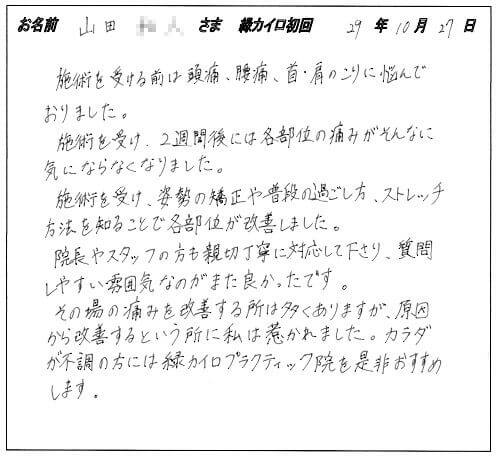 お名前 山田 さま 縁カイロ初回 29年10月27日
施術を受ける前は頭痛、腰痛、首・肩のこりに悩んで
おりました。
施術を受け、2週間後には各部位の痛みがそんなに
気にならなくなりました。
施術を受け、姿勢の矯正や普段の過ごし方、ストレッチ
方法を知ることで各部位が改善しました。
院長やスタッフの方も親切丁寧に対応して下さり、質問
しやすい雰囲気なのがまた良かったです。
その場の痛みを改善する所は多くありますが、原因
から改善するという所に私は惹かれました。カラダ
が不調の方には縁カイロプラクティック院を是非おすすめ
します。